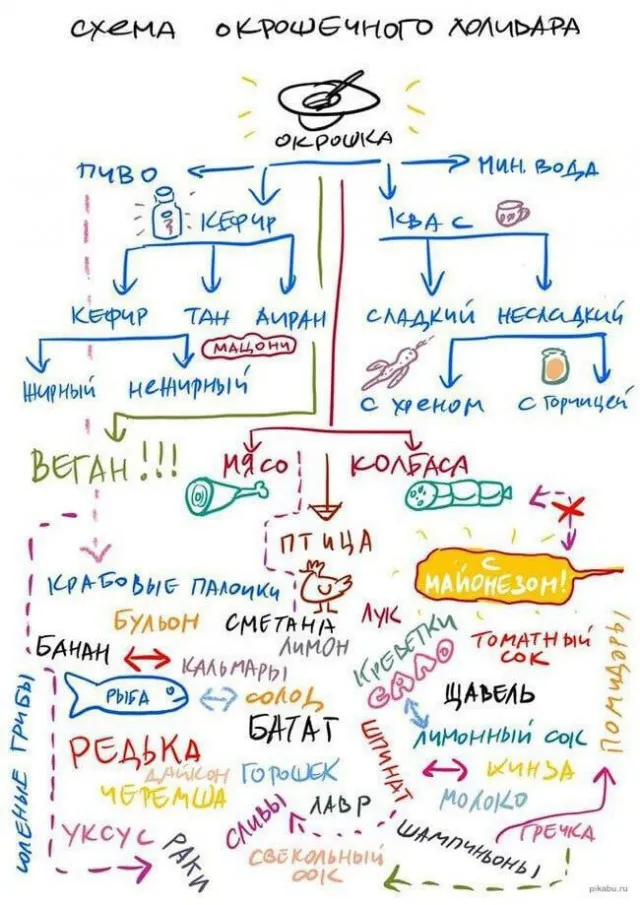 СХЕМА ОКРОШЕЧНОГО ХОЛИВАРА
ОКРОШКА
ПИВО
МИН. ВОДА
КЕФИР
КВАС
КЕФИР ТАН АЙРАН
СЛАДКИЙ НЕСЛАДКИЙ
МАЦОНИ
ЖИРНЫЙ НЕЖИРНЫЙ
С ХРЕНОМ С ГОРЧИЦЕЙ
ВЕГАН!!!
МЯСО КОЛБАСА
ПТИЦА
С МАЙОНЕЗОМ!
КРАБОВЫЕ ПАЛОЧКИ
БУЛЬОН СМЕТАНА ЛУК
БАНАН КАЛЬМАРЫ ЛИМОН КРЕВЕТКИ ТОМАТНЫЙ СОК
РЫБА СОЛОД САЛО ЩАВЕЛЬ ПОМИДОРЫ
СОЛЕНЫЕ ГРИБЫ
БАТАТ ШПИНАТ ЛИМОННЫЙ СОК
РЕДЬКА
ДАЙКОН ГОРОШЕК КИНЗА
ЧЕРЕМША СЛИВЫ ЛАВР МОЛОКО
УКСУС РАКИ ШАМПИНЬОНЫ ГРЕЧКА
СВЕКОЛЬНЫЙ СОК
pikabu.ru